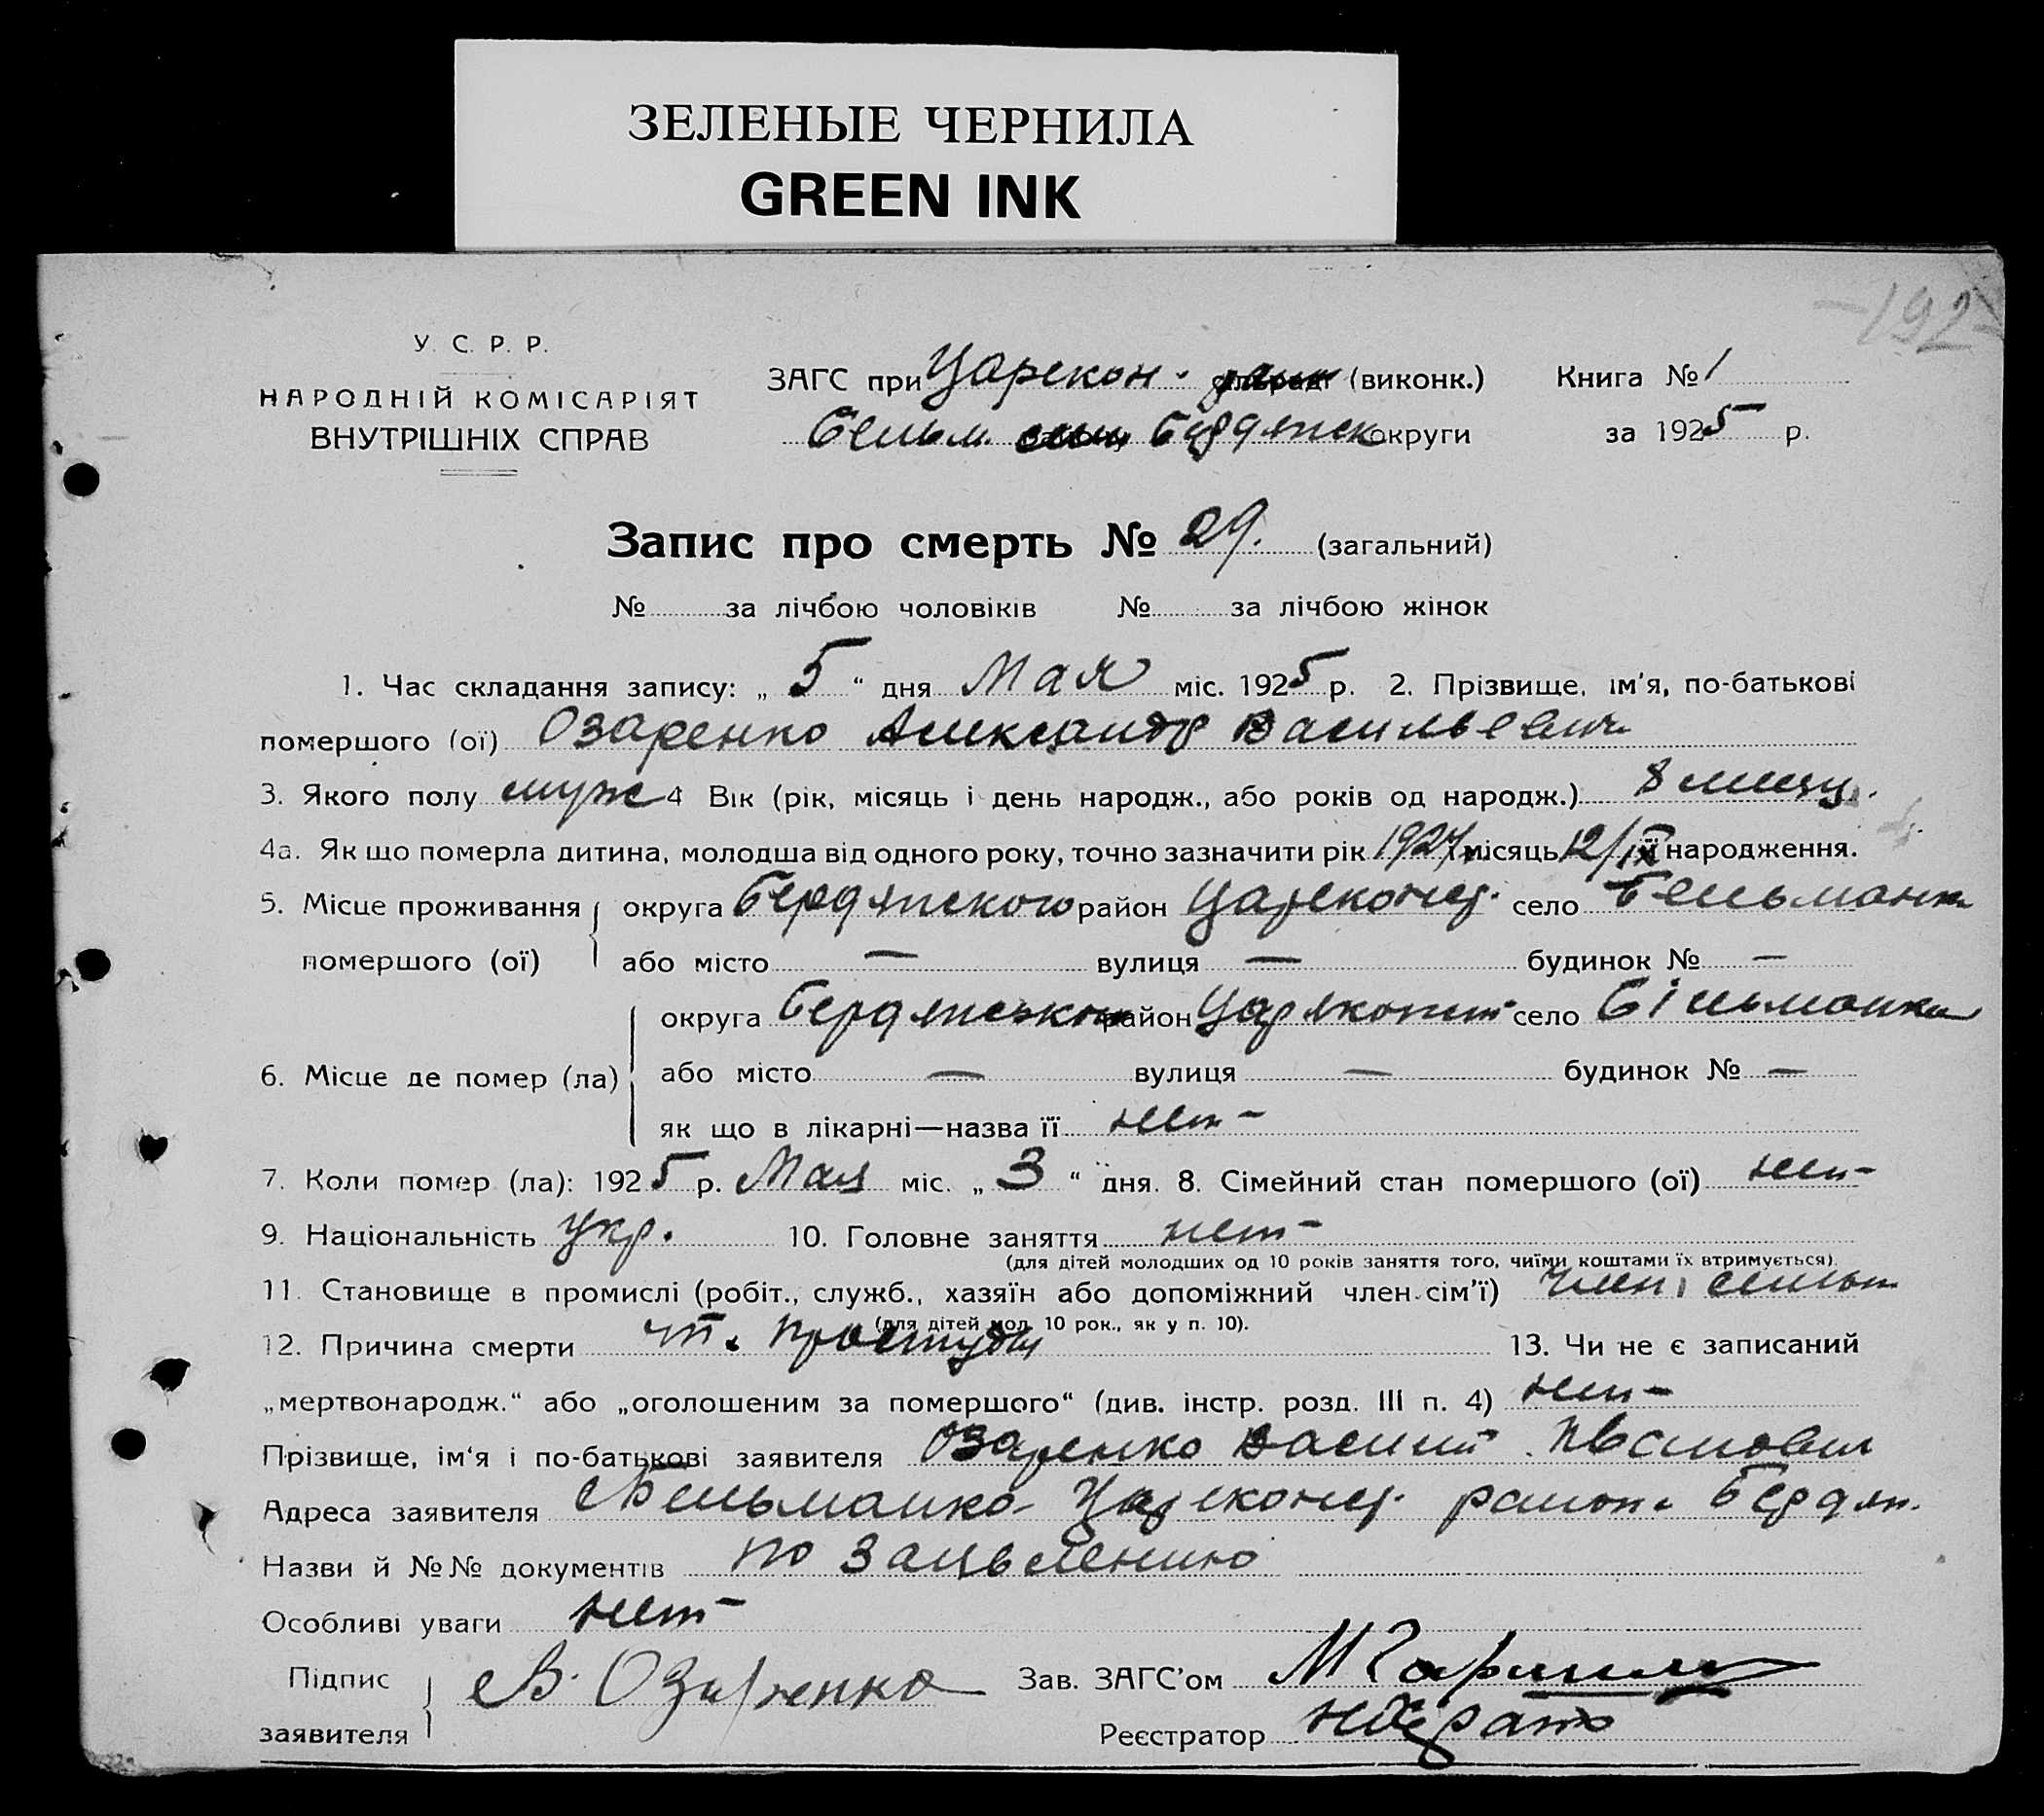 ЗЕЛЕНЫЕ ЧЕРНИЛА
GREEN INK
-192-
У. С. Р. Р.
НАРОДНІЙ КОМІСАРІЯТ
ВНУТРІШНІХ СПРАВ
ЗАГС при Царекон. (виконк.)
Бельм. Бердянск округи
Книга № 1
за 1925 р.
Запис про смерть № 29. (загальний)
№ за лічбою чоловіків № за лічбою жінок
1. Час складання запису: „ 5 “ дня Мая міс. 1925 р. 2. Прізвище, ім'я, по-батькові
помершого (ої) Озаренко Александр Васильевич
3. Якого полу муж 4 Вік (рік, місяць і день народж., або років од народж.) 8 месяц.
4а. Як що померла дитина, молодша від одного року, точно зазначити рік 1924 місяць 12/IX народження.
5. Місце проживання округа Бердянского район Цареконст. село Бельманка
помершого (ої) або місто — вулиця — будинок № —
округа Бердянського район Цареконст село Більманка
6. Місце де помер (ла) або місто — вулиця — будинок № —
як що в лікарні—назва її нет -
7. Коли помер (ла): 1925 р. Мая міс. „ 3 “ дня. 8. Сімейний стан помершого (ої) нет -
9. Національність укр. 10. Головне заняття нет -
(для дітей молодших од 10 років заняття того, чиїми коштами їх втримується)
11. Становище в промислі (робіт., служб., хазяїн або допоміжний член сім'ї) член
(для дітей мол. 10 рок., як у п. 10).
12. Причина смерти от простуды 13. Чи не є записаний
„мертвонародж.“ або „оголошеним за помершого“ (див. інстр. розд. III п. 4) нет -
Прізвище, ім'я і по-батькові заявителя Озаренко Васил Иванович
Адреса заявителя с Бельманка Цареконст. района Бердян.
Назви й №№ документів по заявлению
Особливі уваги нет -
Підпис заявителя В. Озаренко
Зав. ЗАГС'ом
Реєстратор